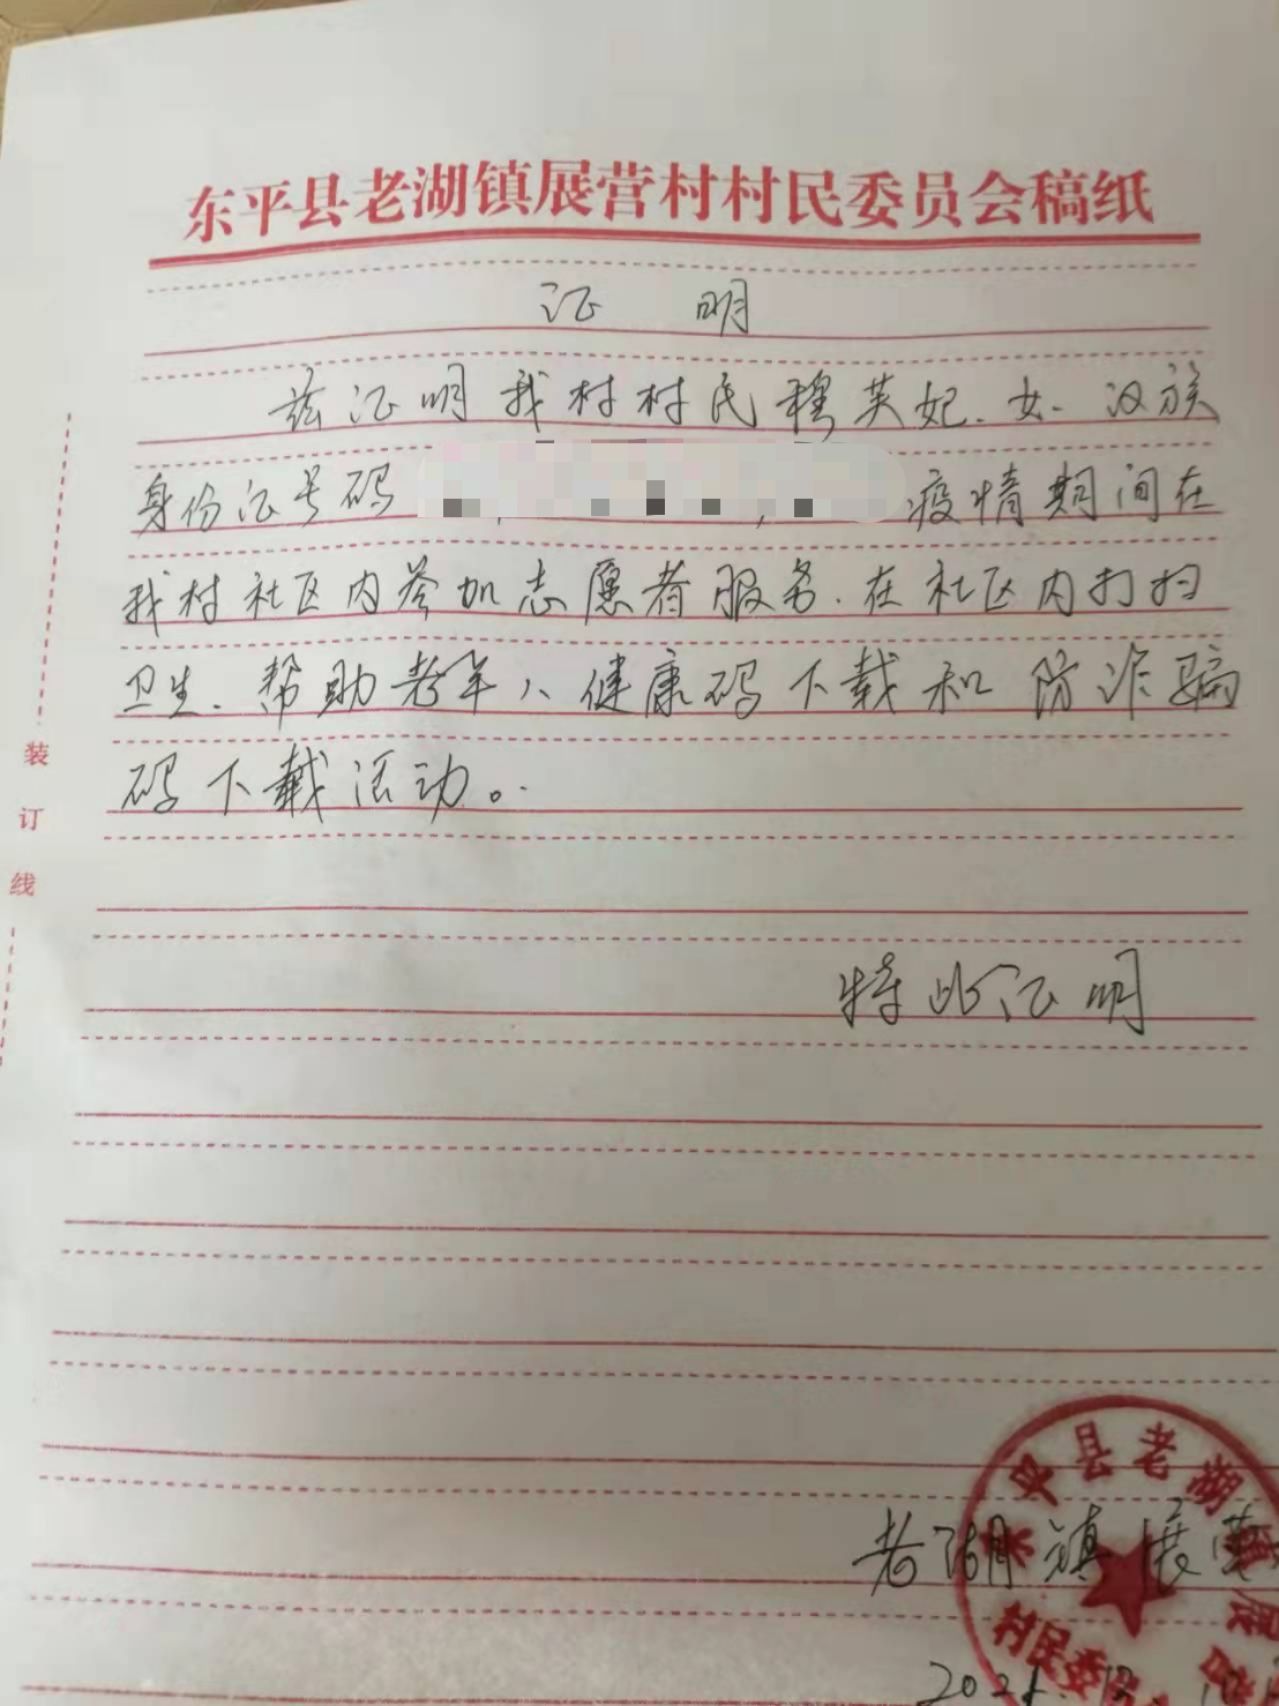 东平县老湖镇展营村村民委员会稿纸
证 明
兹证明我村村民穆英妃、女、汉族
身份证号码 , 疫情期间在
我村社区内参加志愿者服务.在社区内打扫
卫生.帮助老年人、健康码下载和防诈骗
码下载活动。
特此证明
装
订
线
东平县老湖镇展营
村民委
老湖镇展营
2021.12